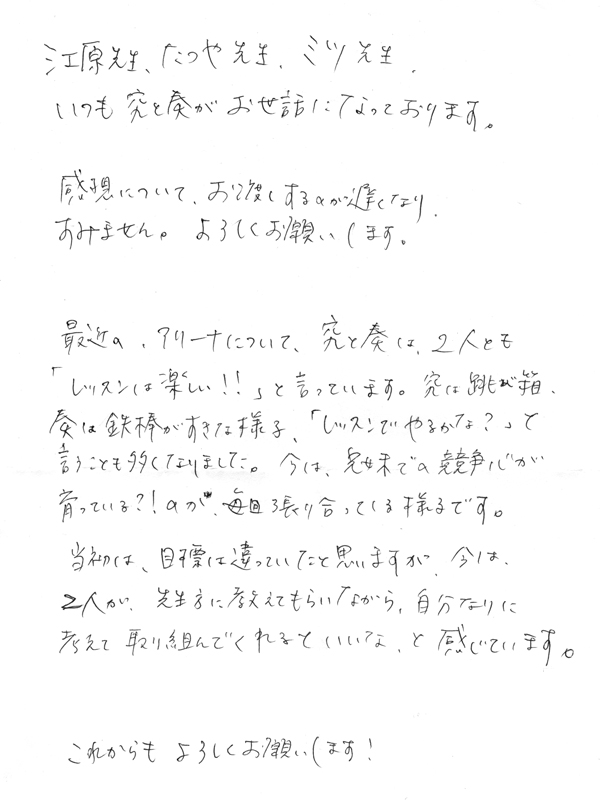 江原先生、たつや先生、ミツ先生、
いつも 究と奏が お世話になっております。
感想について、お渡しするのが遅くなり、
すみません。 よろしくお願いします。
最近の、アリーナについて、究と奏は、2人とも
「レッスンは楽しい!!」と言っています。究は跳び箱、
奏は鉄棒がすきな様子、「レッスンでやるかな?」と
言うことも多くなりました。今は、兄妹での競争心が
育っている?!のか、毎回張り合ってくる様子です。
当初は、目標は違っていたと思いますが、今は、
2人が、先生方に教えてもらいながら、自分なりに
考えて取り組んでくれるといいな、と感じています。
これからも よろしくお願いします!